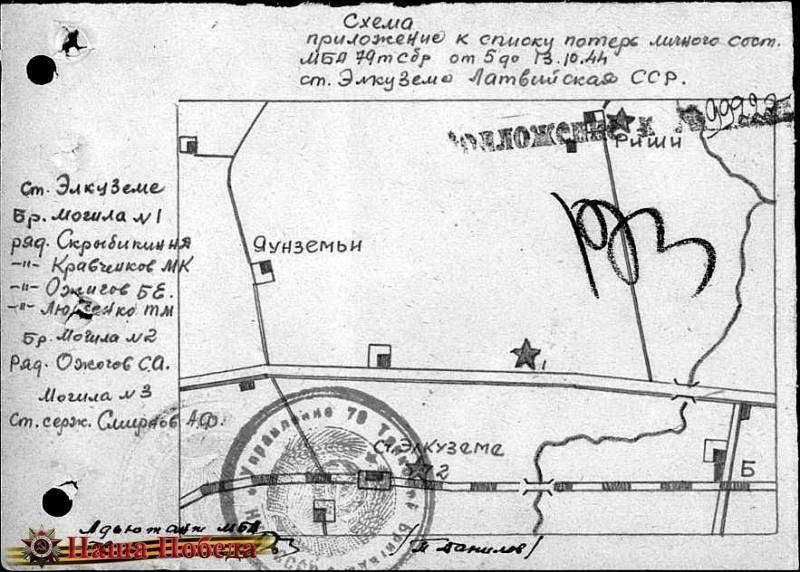 Схема
приложение к списку потерь личного сост.
МБА 79тсбр от 5 до 13.10.44
ст. Элкуземе Латвийская ССР.
99222
Риши
ст. Элкуземе
Бр. Могила №1
ряд. Скрыбикин
-"- Кравченков МК
-"- Ожигов Б.Е.
-"- ТМ
Бр. Могила №2
Ряд. Ожогов С.А.
Могила №3
Ст. серж. Смирнов А.Ф.
Яунземьи
1
ст. Элкуземе
2
Б
Управление 79
Адьютант МБА
/П Данилов/
Наша Победа